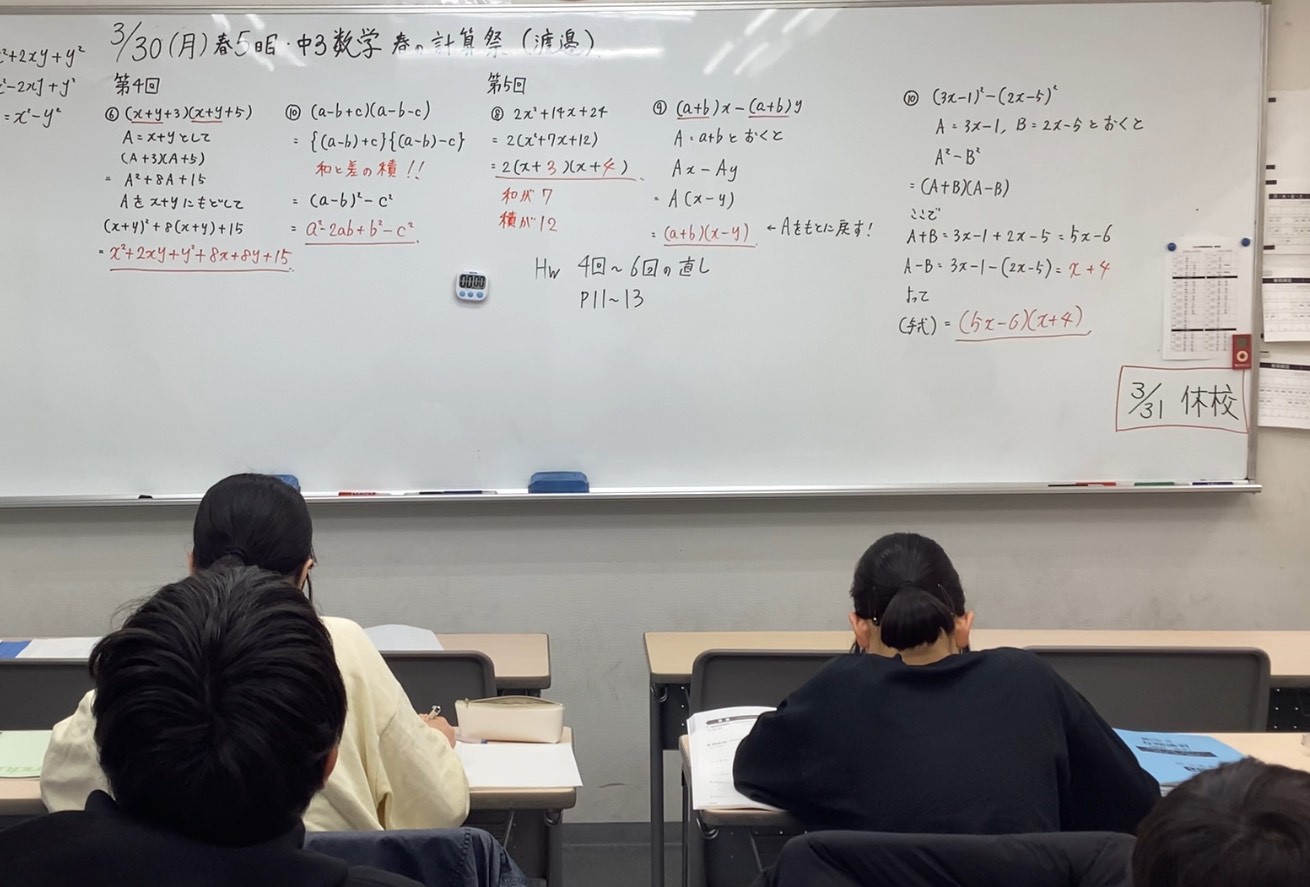 3/30(月)春5日目・中3数学 春の計算祭(渡邉)
x²+2xy+y²
x²-2xy+y²
=x²-y²
第4回
⑥ (x+y+3)(x+y+5)
A=x+yとして
(A+3)(A+5)
= A²+8A+15
Aをx+yにもどして
(x+y)²+8(x+y)+15
= x²+2xy+y²+8x+8y+15
⑩ (a-b+c)(a-b-c)
= {(a-b)+c}{(a-b)-c}
和と差の積!!
= (a-b)²-c²
= a²-2ab+b²-c²
第5回
⑧ 2x²+14x+24
= 2(x²+7x+12)
= 2(x+3)(x+4)
和が7
積が12
⑨ (a+b)x-(a+b)y
A=a+bとおくと
Ax-Ay
= A(x-y)
= (a+b)(x-y) ←Aをもとに戻す!
HW 4回~6回の直し
P11~13
⑩ (3x-1)²-(2x-5)²
A=3x-1, B=2x-5とおくと
A²-B²
= (A+B)(A-B)
ここで
A+B=3x-1+2x-5=5x-6
A-B=3x-1-(2x-5)=x+4
よって
(与式)=(5x-6)(x+4)
3/31 休校